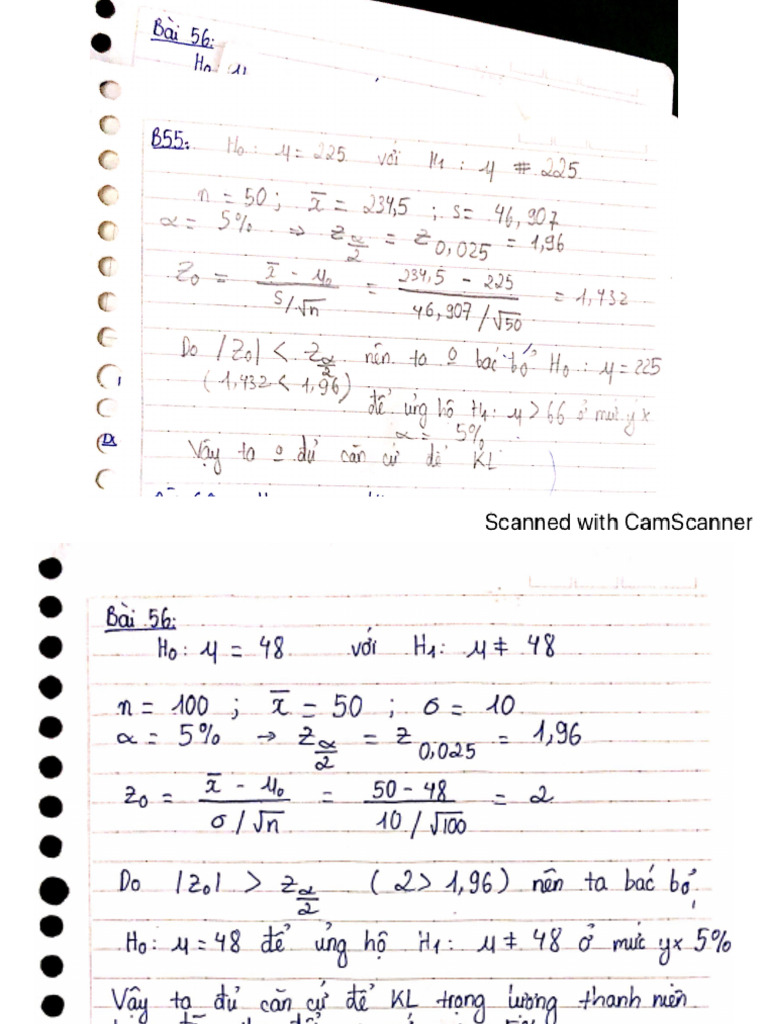 Bài 56:
H₀: μ
B55: H₀: μ = 225 với H₁: μ ≠ 225
n = 50 ; x̄ = 234,5 ; s = 46,907
α = 5% ⇒ z_{α/2} = z_{0,025} = 1,96
z₀ = (x̄ - μ₀)/(s/√n) = (234,5 - 225)/(46,907/√50) = 1,432
Do |z₀| < z_{α/2} nên ta o bác bỏ H₀: μ = 225
(1,432 < 1,96)
để ủng hộ H₁: μ > 66 ở mức yx
α = 5%
Vậy ta o đủ căn cứ để KL
Scanned with CamScanner
Bài 56:
H₀: μ = 48 với H₁: μ ≠ 48
n = 100 ; x̄ = 50 ; σ = 10
α = 5% → z_{α/2} = z_{0,025} = 1,96
z₀ = (x̄ - μ₀)/(σ/√n) = (50 - 48)/(10/√100) = 2
Do |z₀| > z_{α/2} (2 > 1,96) nên ta bác bỏ
H₀: μ = 48 để ủng hộ H₁: μ ≠ 48 ở mức yx 5%
Vậy ta đủ căn cứ để KL trọng lượng thanh niên